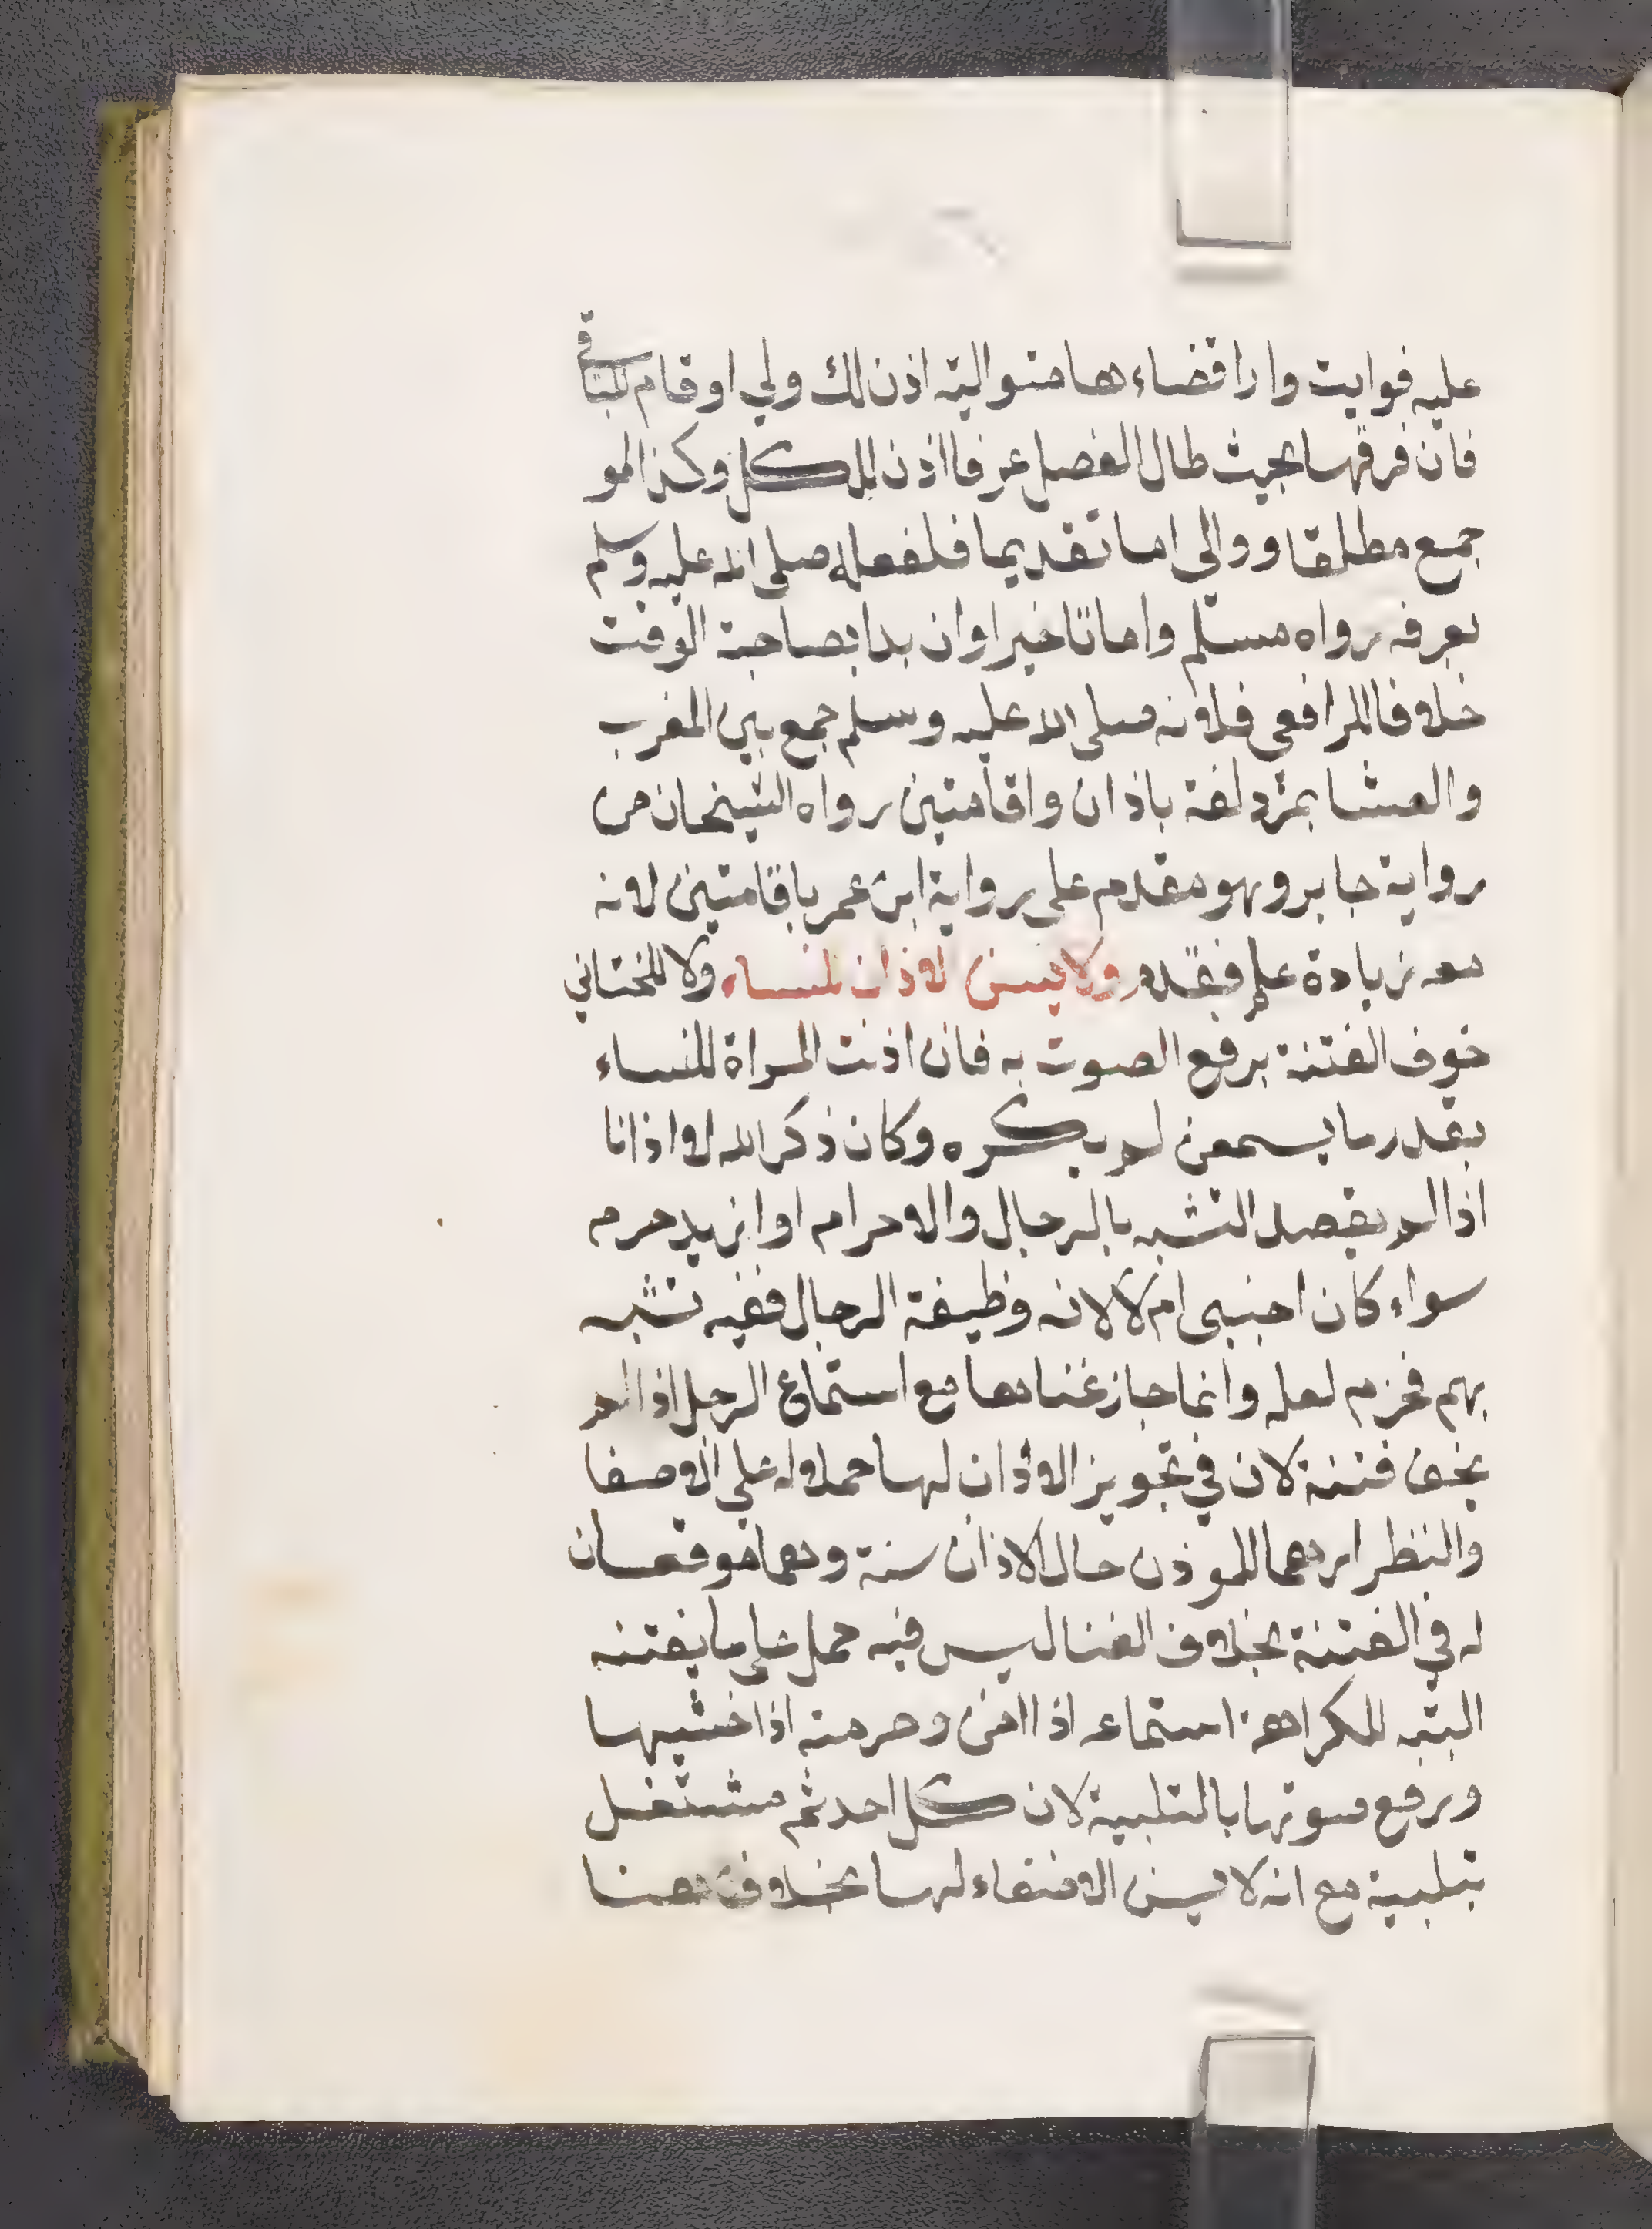 عليه فوايت وارا قضاء ها متوالية اذن لك ولي اوقام للباقي
فان فرقها بحيث طال الفصل عرفا اذن للكل وكذا لو
جمع مطلقا ووالي اما تقديما فلفعله صلى الله عليه وسلم
بعرفه رواه مسلم واما تاخيرا وان بدا بصاحبة الوقت
خلافا للرافعي فلانه صلى الله عليه وسلم جمع بين المغرب
والعشا بمزدلفة باذان واقامتين رواه الشيخان من
رواية جابر وهو مقدم على رواية ابن عمر باقامتين لانه
معه زيادة علم فقدم ولا يسن الاذان لنساء ولا للخناثي
خوف الفتنة برفع الصوت به فان اذنت المراة للنساء
بقدر ما يسمعن لم يكره وكان ذكر الله لا اذانا
اذا لم يقصد التشبه بالرجال والاحرام او ازيد حرم
سواء كان اجنبي ام لا لانه وظيفة الرجال ففيه تشبه
بهم فحزم لعله وانما جاز غناها مع استماع الرجل اذا لم
يخف فتنة لان في تجويز الاذان لها حملا له على الاصغا
والنظر اردهما للموذن حال الاذان سنة وهما موقعان
له في الفتنة بخلاف الغنا ليس فيه حمل على ما يفتنه
البتبه للكراهة استماعه اذا امن وحرمته اذا خشيها
وبرفع صوتها بالتلبية لان كل احد ثم مشتغل
بتلبية مع انه لا يسن الاصغاء لها بخلاف هنا